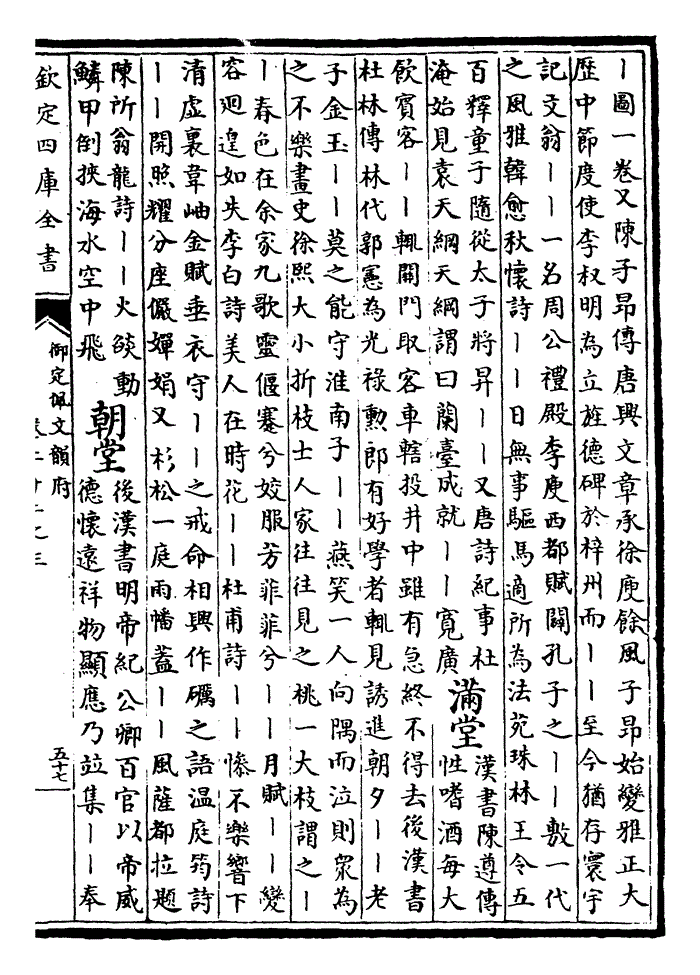 丨圖一卷又陳子昂傳唐興文章承徐庾餘風子昻始變雅正大
歴中節度使李叔明為立旌德碑於梓州而丨丨至今猶存寰宇
記文翁丨丨一名周公禮殿李庾西都賦闢孔子之丨丨敷一代
之風雅韓愈秋懐詩丨丨日無事驅馬適所為法苑珠林王令五
百釋童子隨從太子將昇丨丨又唐詩紀事杜
淹始見袁天綱天綱謂曰蘭臺成就丨丨寛廣
滿堂
漢書陳遵傳
性嗜酒每大
飲賓客丨丨輒闗門取客車轄投井中雖有急終不得去後漢書
杜林傳林代郭憲為光祿勲郎有好學者輒見誘進朝夕丨丨老
子金玉丨丨莫之能守淮南子丨丨燕笑一人向隅而泣則衆為
之不樂畫史徐熙大小折枝士人家往往見之桃一大枝謂之丨
丨春色在余家九歌靈偃蹇兮姣服芳菲菲兮丨丨月賦丨丨變
容迴遑如失李白詩美人在時花丨丨杜甫詩丨丨慘不樂響下
清虚裏韋岫金賦垂衣守丨丨之戒命相興作礪之語温庭筠詩
丨丨開照耀分座儼嬋娟又杉松一庭雨幡蓋丨丨風薩都拉題
陳所翁龍詩丨丨火燄動
鱗甲倒挾海水空中飛
朝堂
後漢書明帝紀公卿百官以帝威
德懐遠祥物顯應乃竝集丨丨奉
欽定四庫全書
御定佩文韻府
五十七